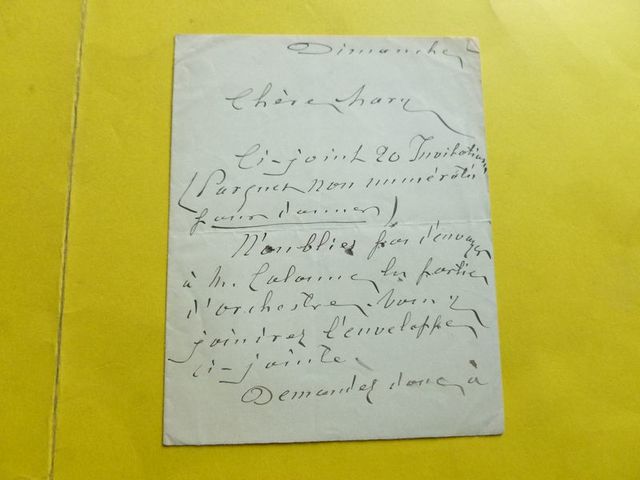 Dimanche
Chère Mary
Ci-joint 20 Invitations
(Parquet non numérotés
pour donner)
N'oubliez pas d'envoyer
à M. Colonne les parties
d'orchestre. Vous y
joindrez l'enveloppe
ci-jointe.
Demandez donc à